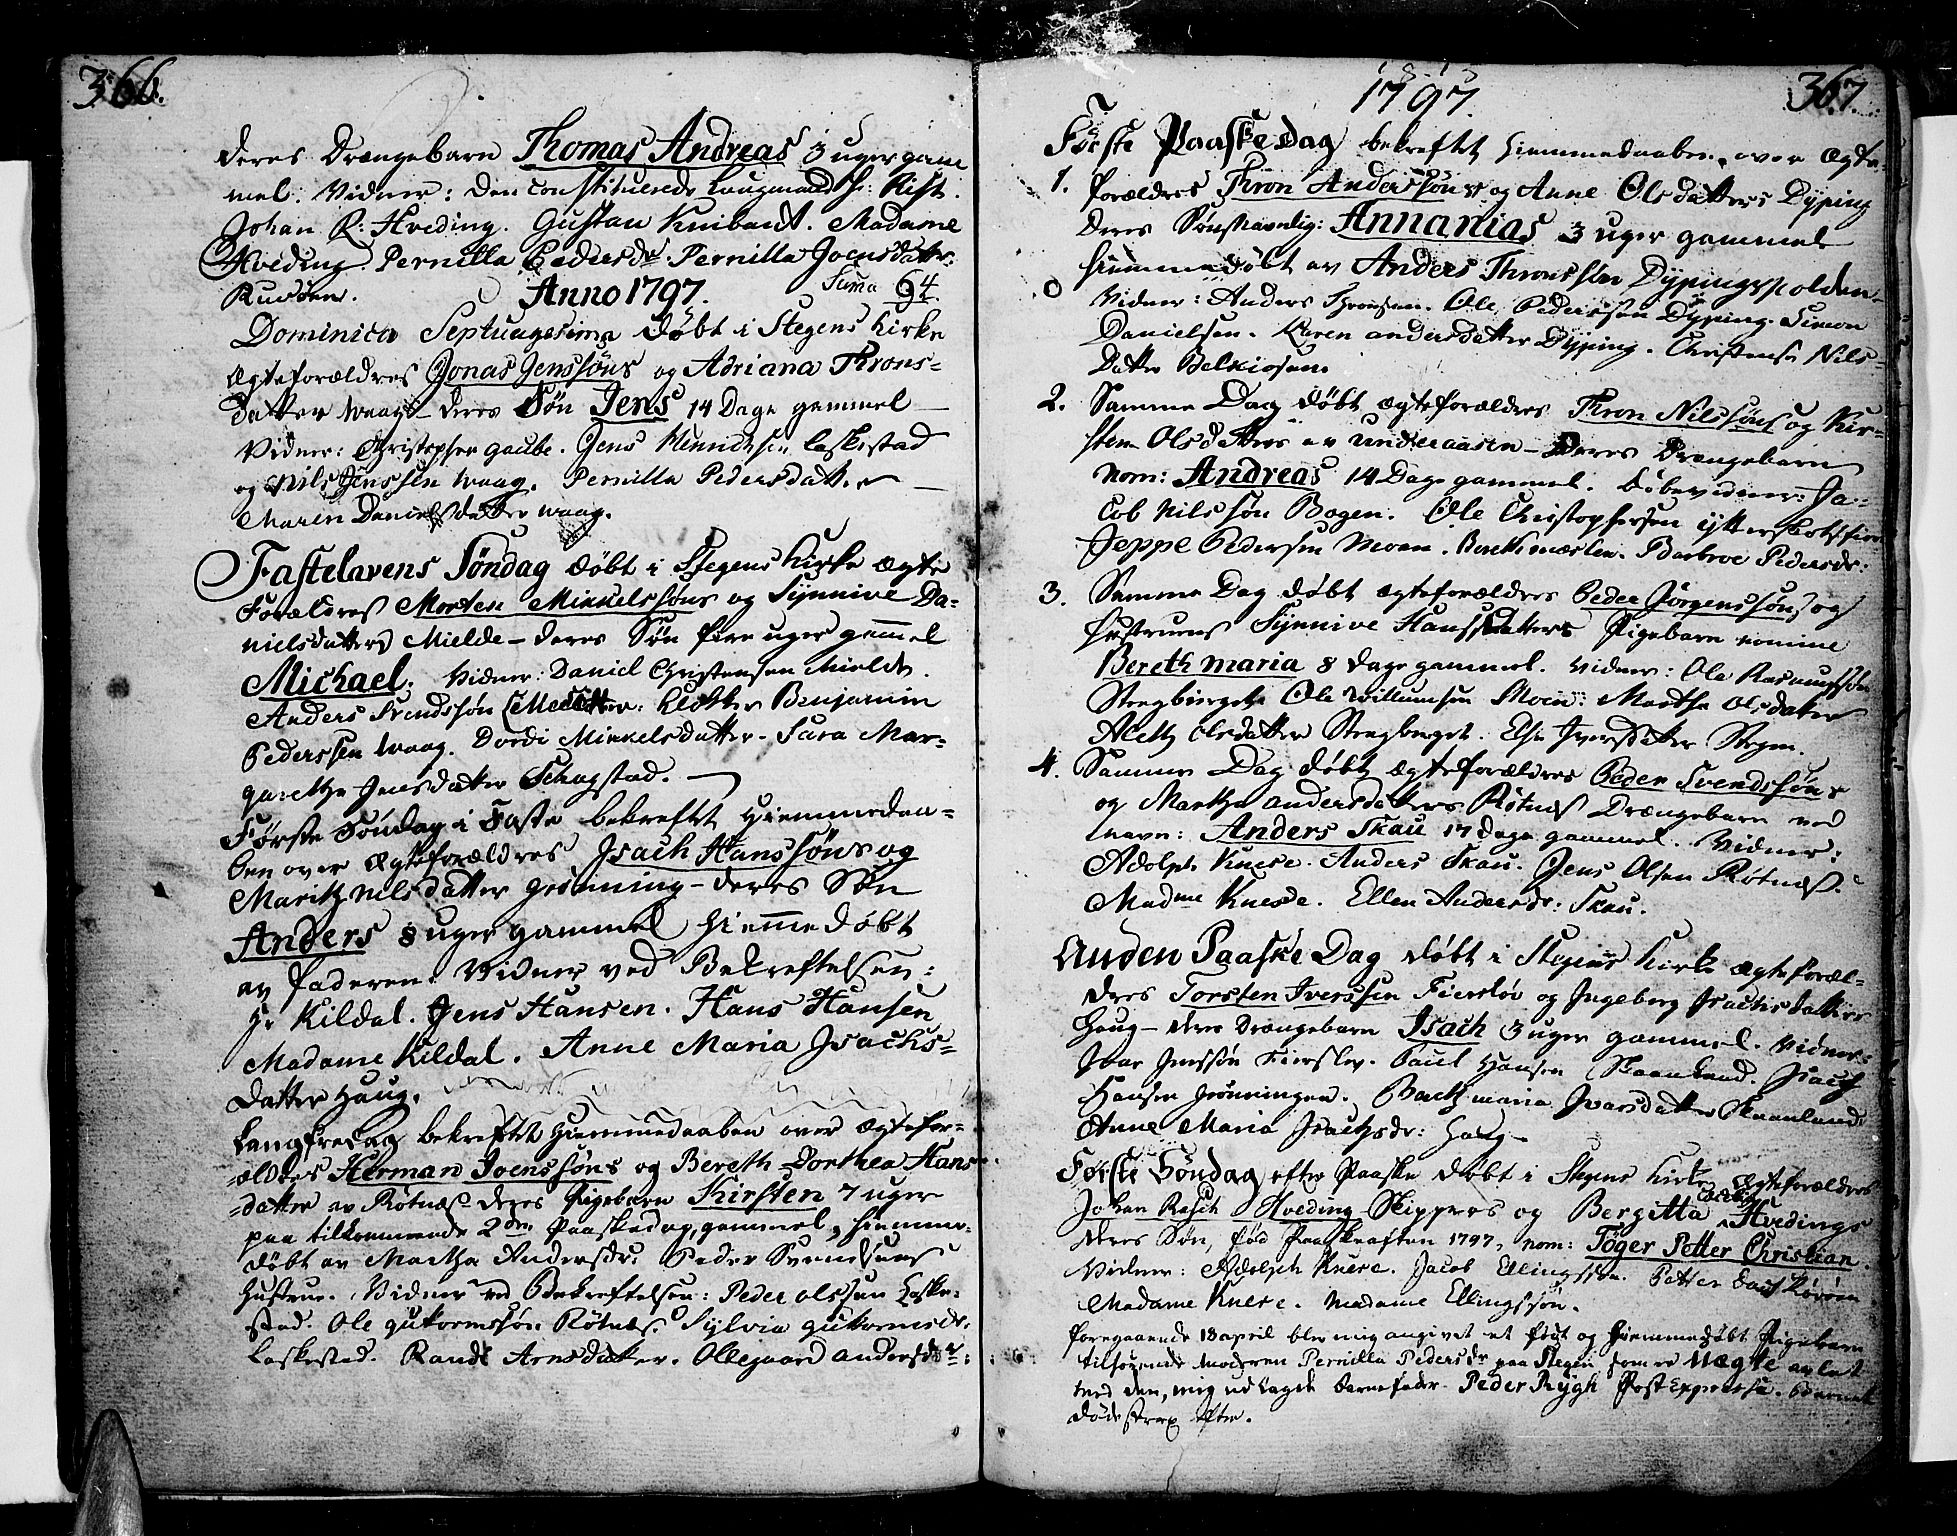 366.
deres Drængebarn Thomas Andreas 3 uger gam
mel. Vidner: Den Constituerede Laugmand Hr: Rist.
Johan R: Hveding. Gustav Knibandt. Madame
Hveding. Pernilla Pedersdr. Pernilla Joensdatter
Anno 1797. Suma 64.
Dominica Septuagesima døbt i Stegens Kirke
Ægteforældres Jonas Jenssøns og Adriana Throns-
datter Waag - deres Søn Jens 14 Dage gammel -
Vidner: Christopher Gaube. Jens Hinrichsen Laskestad
og Nils Jenssen Waag. Pernilla Pedersdatter -
Maren Danielsdatter Waag.
Fastelavens Søndag døbt i Stegens Kirke Ægte
Forældres Morten Mikkelssøns og Synnive Da-
nielsdatters Mielde - deres Søn fire uger gammel
Michael. Vidner: Daniel Christensen Mielde.
Anders Svendssøn Klokker Benjamin
Pederssen Waag. Dordi Mikkelsdatter. Sara Mar-
garetha Jensdatter Schagstad. -
Første Søndag i Faste bekreftet Hiemmedaa-
ben over Ægteforældres Isach Hanssøns og
Maritz Nilsdatter Grønning - deres Søn
Anders 8 uger gammel Hiemmedøbt
av faderen. Vidner ved Bekreftelsen:
Hr Kildal. Jens Hansen. Hans Hansen
Madame Kildal. Anne Maria Isachs-
datter Haug.
Langfredag bekreftet Hiemmedaaben over Ægtefor-
ældres Herman Joenssøns og Bereth Dorthea Hans
-datter av Røtnæs deres Pigebarn Kirsten 7 uger
paa tilkommende 2den Paaskedag, gammel, hiemme-
døbt av Martha Andersdr: Peder Svendssøns
Hustrue. Vidner ved Bekreftelsen: Peder Olssen Laske-
stad. Ole Gutormssøn Røtnæs. Sylvia Gutormsdr:
Laskestad. Randi Arnsdatter. Ollegaard Andersdr:
1797.
367.
Første Paaske Dag bekreftet Hiemmedaaben over Ægte-
1. forældres Thron Anderssøns og Anne Olsdatters Dyping
deres Søn navnlig: Annanias 3 uger gammel
hiemmedøbt av Anders Thronssøn Dypingspolden
Vidner: Anders Thronsen. Ole Pedersen Dyping. Simon
Danielsen. Karen Andersdatter Dyping. Christense Nils-
datter
2. Samme Dag døbt Ægteforældres Thron Nilssøns og Kir-
sten Olsdatters av Underaasen - deres Drængebarn
nom: Andreas 14 Dage gammel. Døbevidner: Ja-
cob Nilssøn Bogen. Ole Christophersen
Jeppe Pedersen Moen. Barbroe Pedersdr:
3. Samme Dag døbt Ægteforældres Peder Jørgenssøns og
Hustrues Synnive Hansdatters Pigebarn nomine
Bereth maria 8 dage gammel. Vidner: Ole Rasmussøn
Stregbierget. Ole Willumsen Moen. Martha Olsdatter
Aleth Olsdatter Stregbierget. Else Iversdatter Stegen.
4. Samme Dag døbt Ægteforældres Peder Svendssøns
og Martha Andersdatters Røtnæs Drængebarn ved
navn: Anders Skau 17 dage gammel. Vidner:
Adolph Knese. Anders Skau. Jens Olsen Røtnæs.
Madme Knese. Ellen Andersdr: Skau.
Anden Paaske Dag døbt i Stegens Kirke Ægteforæl-
dres Torsten Iverssen Fiersløv og Ingeborg Isachsdatters
Haug - deres Drængebarn Isach 3 uger gammel. Vidner:
Iver Jenssøn Fiersløv. Paul Hansen Skaanland. Isach
Hansen Grønningen. Bereth maria Ivarsdatter Skaanland.
Anne Maria Isachsdr: Haug -
Første Søndag efter Paaske døbt i Stegens Kirke Ægteforældres
Johan Rasch Hveding Skippers og Bergitta Hvedings
deres Søn, fød Paaskeaften 1797, nom: Tøger Petter Christian.
Vidner: Adolph Knese. Jacob Ellingssøn. Petter
Madame Knese. Madame Ellingssøn.
foregaaende 18 april blev mig angivet et født og hiemmedøbt Pigebarn
tilhørende Moderen Pernilla Pedersdr paa Stegen som er Uægte avlet
med den, mig udlagde barnefader Peder Rygh Barnet
døde strax efter.